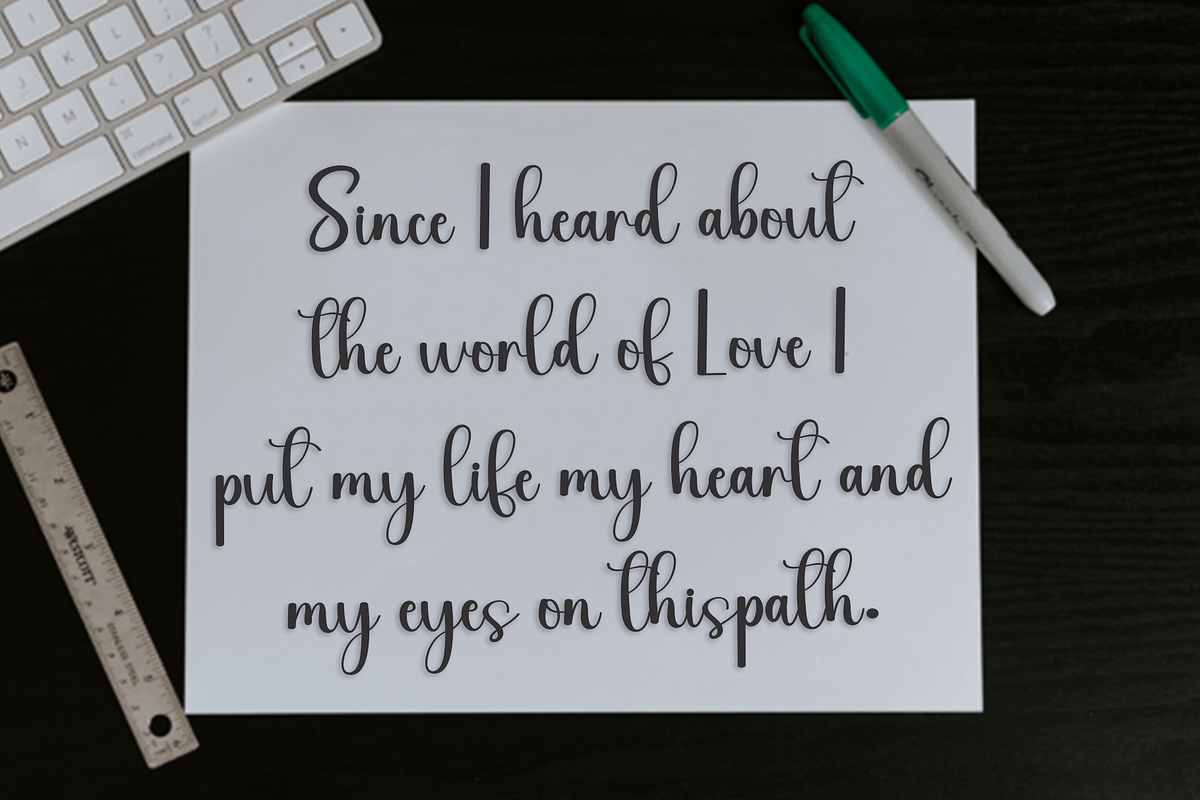 Since I heard about
the world of Love I
put my life my heart and
my eyes on thispath.
I
L
?
/
J
K
<
,
>
.
N
M
⌘
command
option
Westcott